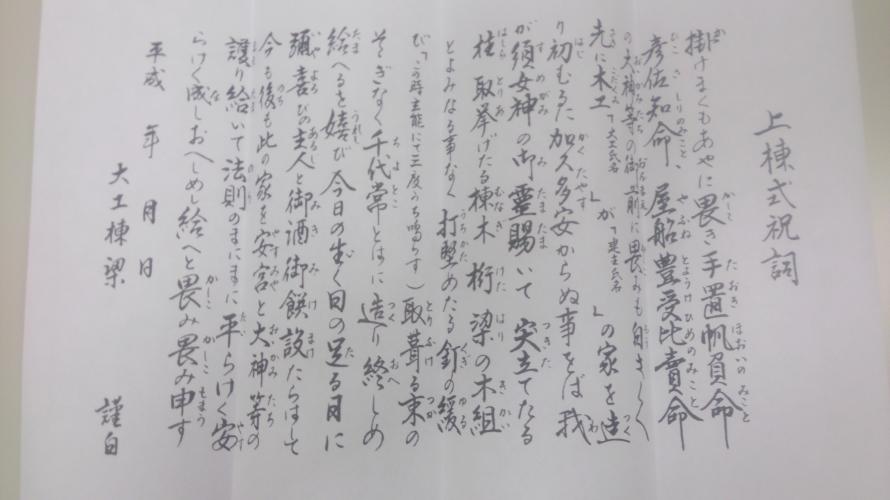 上棟式祝詞
掛けまくもあやに畏き手置帆負命
彦佐知命、屋船豊受比賣命
の大神等の御前に畏みも白さく
先に木工「大工氏名」が「建主氏名」の家を造
り初むるた加久多安からぬ事をば我
が須女神の御霊賜いて突立てたる
柱取挙げたる棟木桁梁の木組
とよみなる事なく打堅めたる釘の緩
び「この時主能にて三度うち鳴らす」取葺る束の
そゝぎなく千代常とはに造り終しめ
給へるを嬉び今日の生く日の足る日に
彌喜びの主人と御酒御饌設たらはして
今も後も此の家を安宮と大神等の
護り給いて法則のまにまに平らけく安
らけく成しおへしめ給へと畏み畏み申す
平成 年 月 日
大工棟梁 謹白